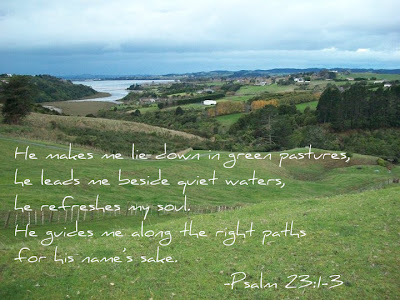 He makes me lie down in green pastures,
he leads me beside quiet waters,
he refreshes my soul.
He guides me along the right paths
for his name's sake.
-Psalm 23:1-3